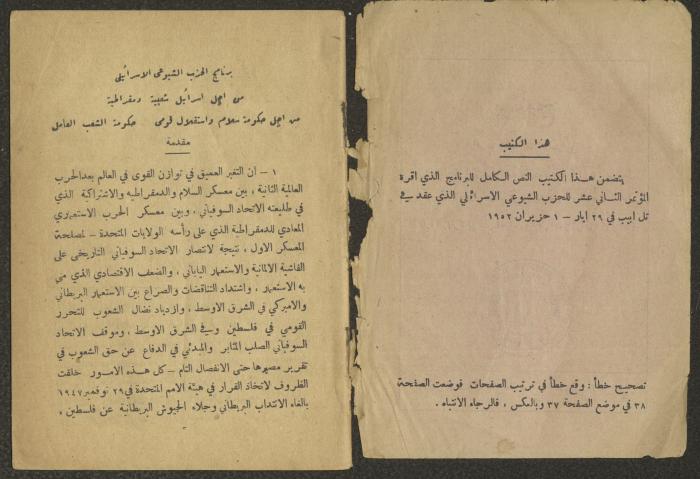 هذا الكتيب
يتضمن هذا الكتيب النص الكامل للبرنامج الذي اقره
المؤتمر الثاني عشر للحزب الشيوعي الاسرائلي الذي عقد في
تل ابيب في ٢٩ ايار – ١ حزيران ١٩٥٢
تصحيح خطأ : وقع خطأ في ترتيب الصفحات فوضعت الصفحة
٣٨ في موضع الصفحة ٣٧ وبالعكس . فالرجاء الانتباه .
برنامج الحزب الشيوعي الاسرائيلي
من اجل اسرائيل شعبية ودمقراطية
من اجل حكومة سلام واستقلال قومي حكومة الشعب العامل
مقدمة
١ – ان التغير العميق في توازن القوى في العالم بعد الحرب
العالمية الثانية ، بين معسكر السلام والدمقراطية والاشتراكية الذي
في طليعته الاتحاد السوفياتي ، وبين معسكر الحرب الاستعماري
المعادي للدمقراطية الذي على رأسه الولايات المتحدة – لمصلحة
المعسكر الاول ، نتيجة لانتصار الاتحاد السوفياتي التاريخي على
الفاشية الالمانية والاستعمار الياباني ، والضعف الاقتصادي الذي مني
به الاستعمار ، واشتداد التناقضات والصراع بين الاستعمار البريطاني
والاميركي في الشرق الاوسط ، وازدياد نضال الشعوب للتحرر
القومي في فلسطين وفي الشرق الاوسط ، وموقف الاتحاد
السوفياتي الصلب المثابر والمبدئي في الدفاع عن حق الشعوب في
تقرير مصيرها حتى الانفصال التام – كل هذه الامور خلقت
الظروف لاتخاذ القرار في هيئة الامم المتحدة في ٢٩ نوفمبر ١٩٤٧
بالغاء الانتداب البريطاني وجلاء الجيوش البريطانية عن فلسطين ،